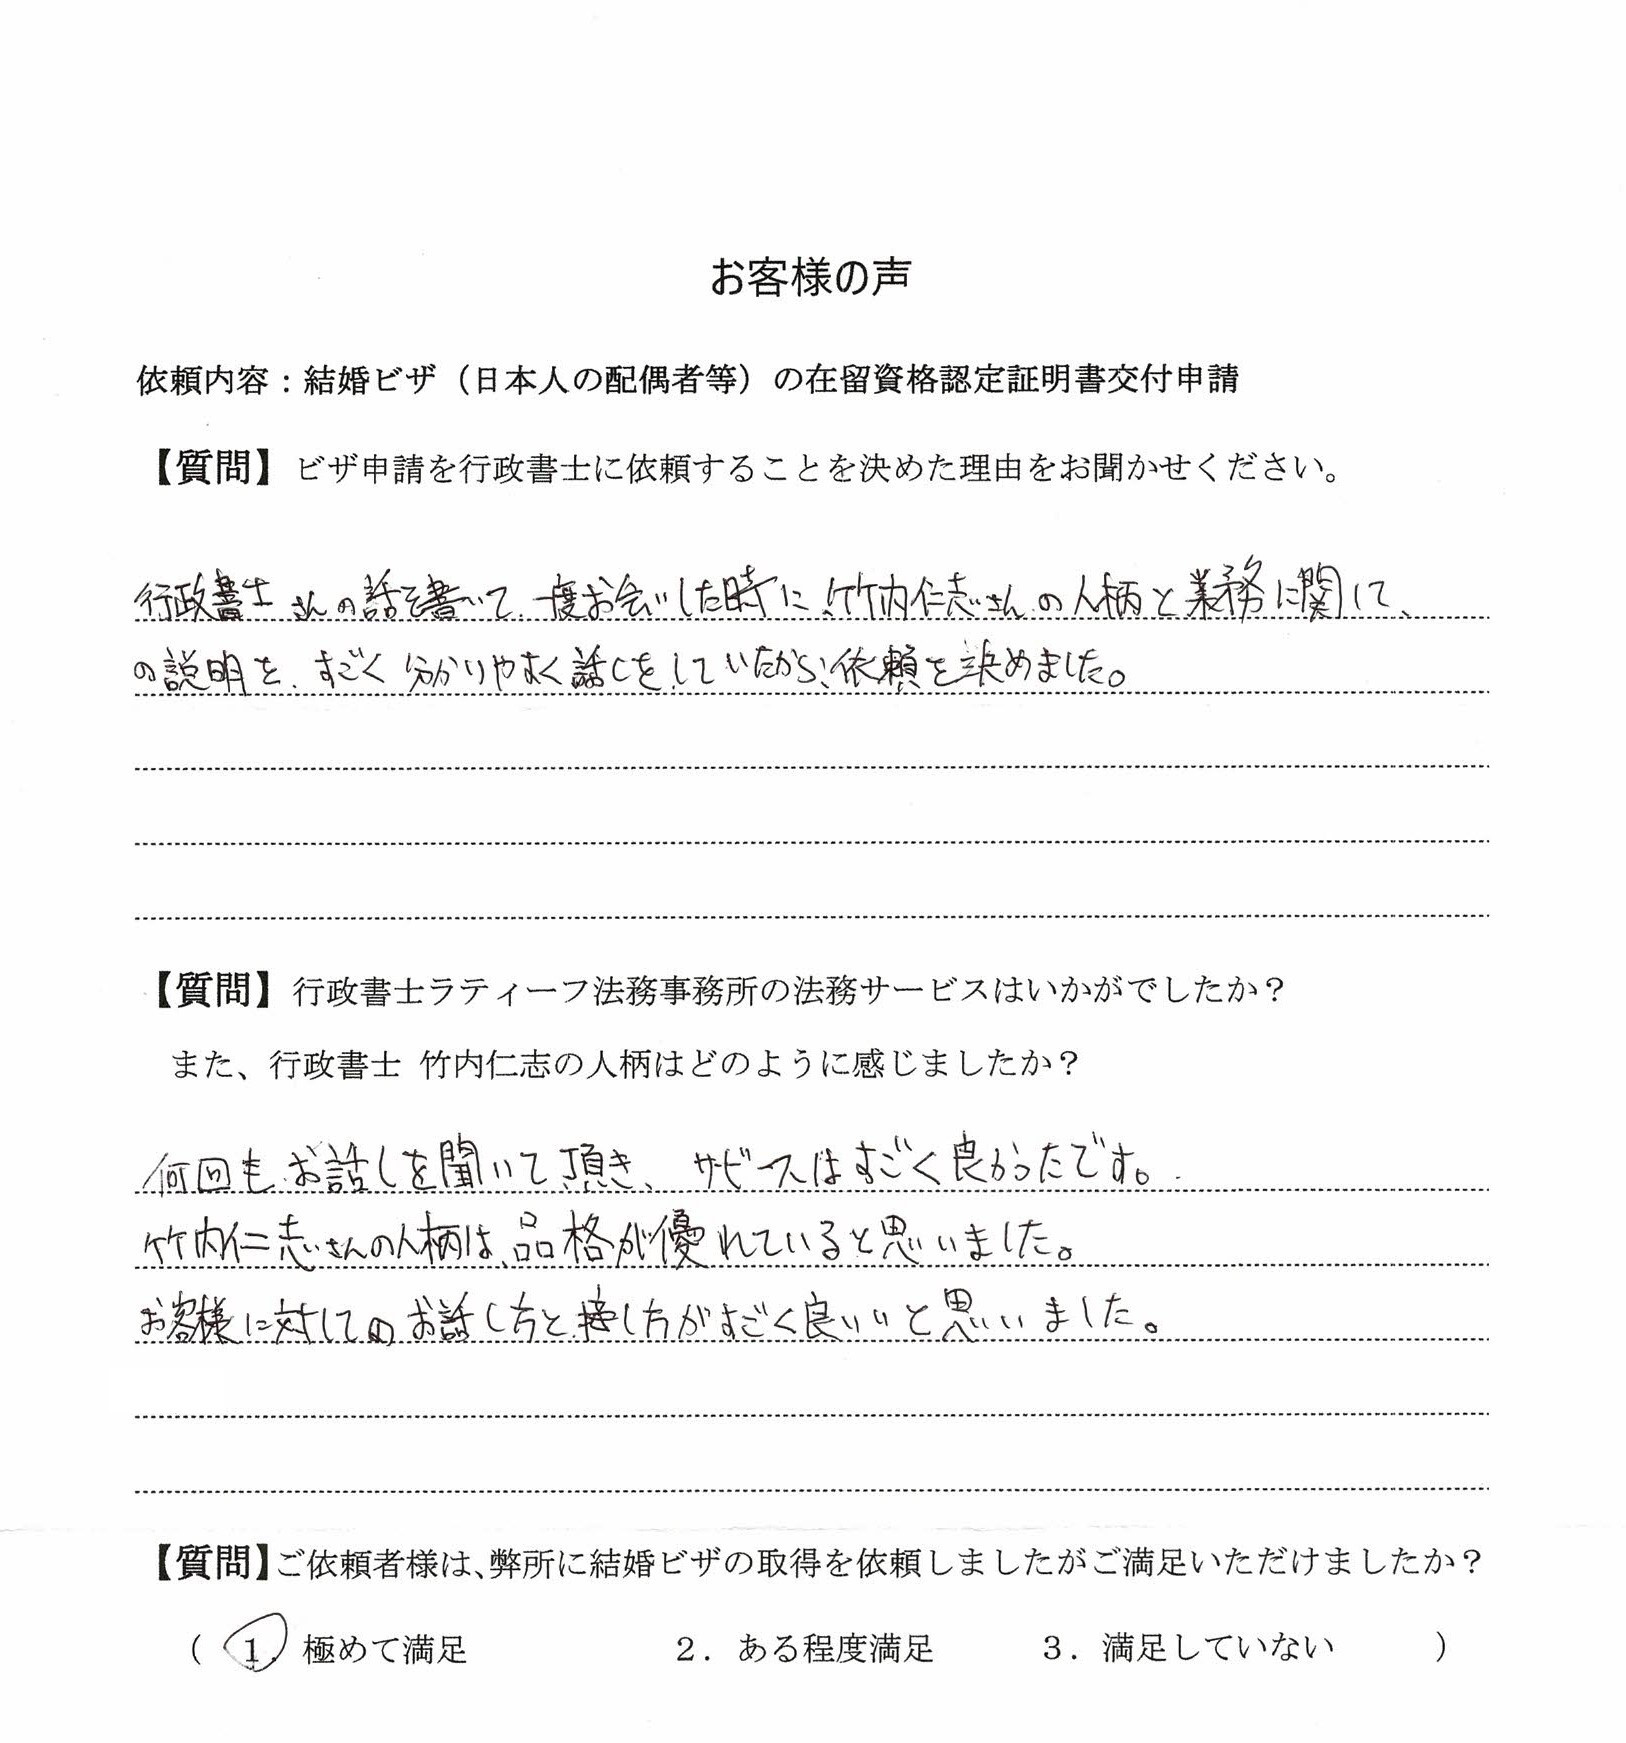 お客様の声
依頼内容：結婚ビザ（日本人の配偶者等）の在留資格認定証明書交付申請
【質問】ビザ申請を行政書士に依頼することを決めた理由をお聞かせください。
行政書士さんの話を書いて、一度お会いした時に、竹内仁志さんの人柄と業務に関して、
の説明を、すごく分かりやすく話しをしていたから、依頼を決めました。
【質問】行政書士ラティーフ法務事務所の法務サービスはいかがでしたか？
また、行政書士 竹内仁志の人柄はどのように感じましたか？
何回もお話しを聞いて頂き、サービスはすごく良かったです。
竹内仁志さんの人柄は、品格が優れていると思いました。
お客様に対してのお話し方と接し方がすごく良いいと思いいました。
【質問】ご依頼者様は、弊所に結婚ビザの取得を依頼しましたがご満足いただけましたか？
（ 1．極めて満足 2．ある程度満足 3．満足していない ）